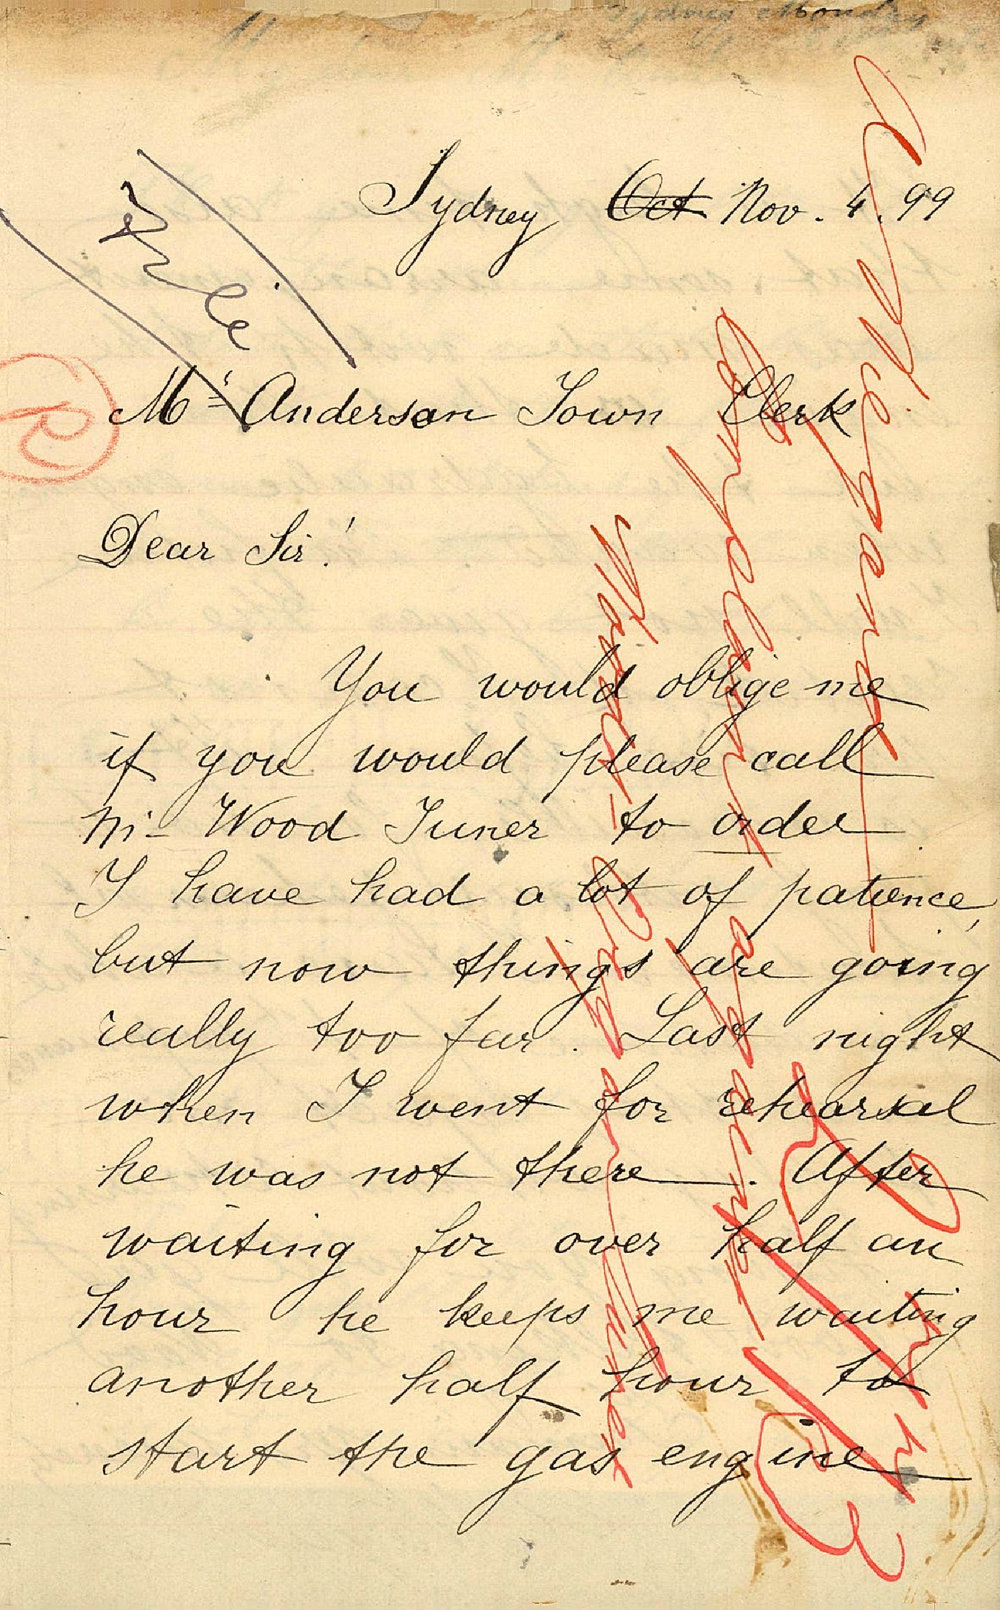 Sydney Oct Nov. 4. 99
File
Mr Anderson Town Clerk
R
Dear Sir!
You would oblige me
if you would please call
Mr Wood Tuner to order
I have had a lot of patience,
but now things are going
really too far. Last night
when I went for rehearsal
he was not there. After
waiting for over half an
hour he keeps me waiting
another half hour to
start the gas engine
A Wiegand
Complaint against
Wood - Organ Tuner